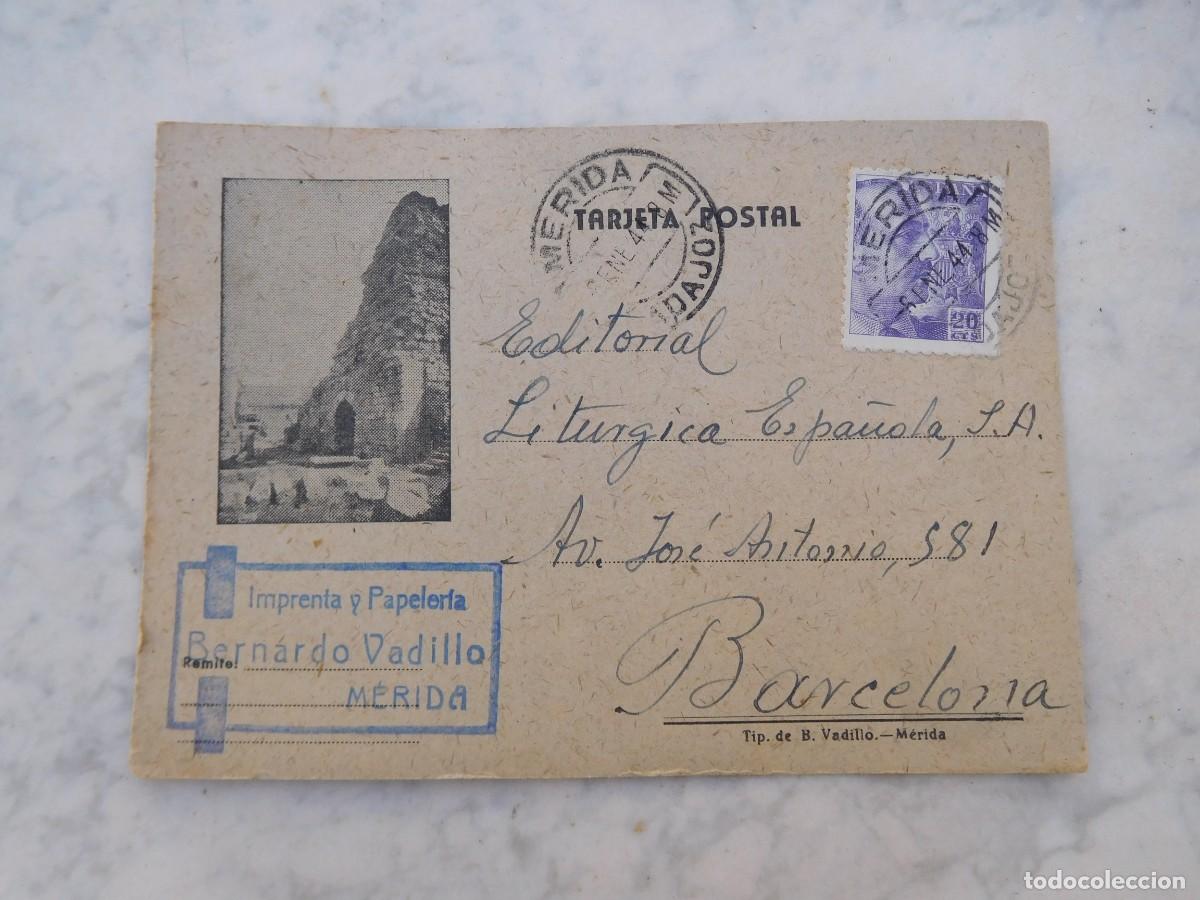 TARJETA POSTAL
MERIDA
6 ENE 44 8 M
MERIDA
6 ENE 44 8 M
20
CTS
Editorial
Liturgica Española, S.A.
Av. José Antonio, 581
Barcelona
Imprenta y Papelería
Bernardo Vadillo
Remite:
MÉRIDA
Tip. de B. Vadillo.—Mérida
todocoleccion